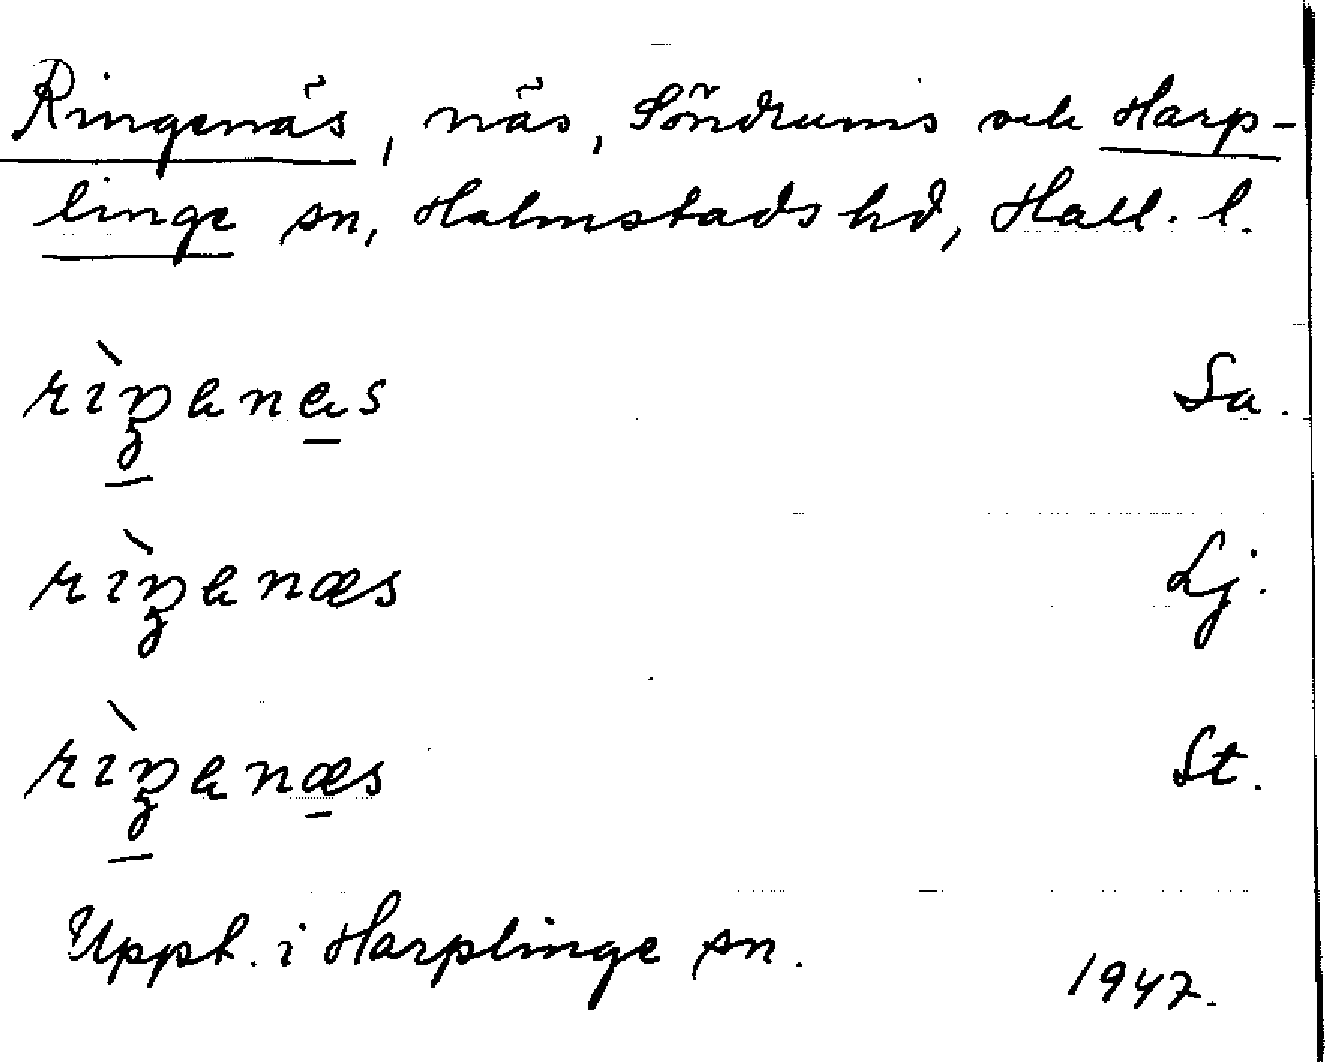 Ringenäs, näs, Söndrums och Harp-
linge sn, Halmstads hd, Hall. l.
rìŋanas Sa.
rìŋanæs Lj.
rìŋanæs St.
Uppt. i Harplinge sn.
1947.